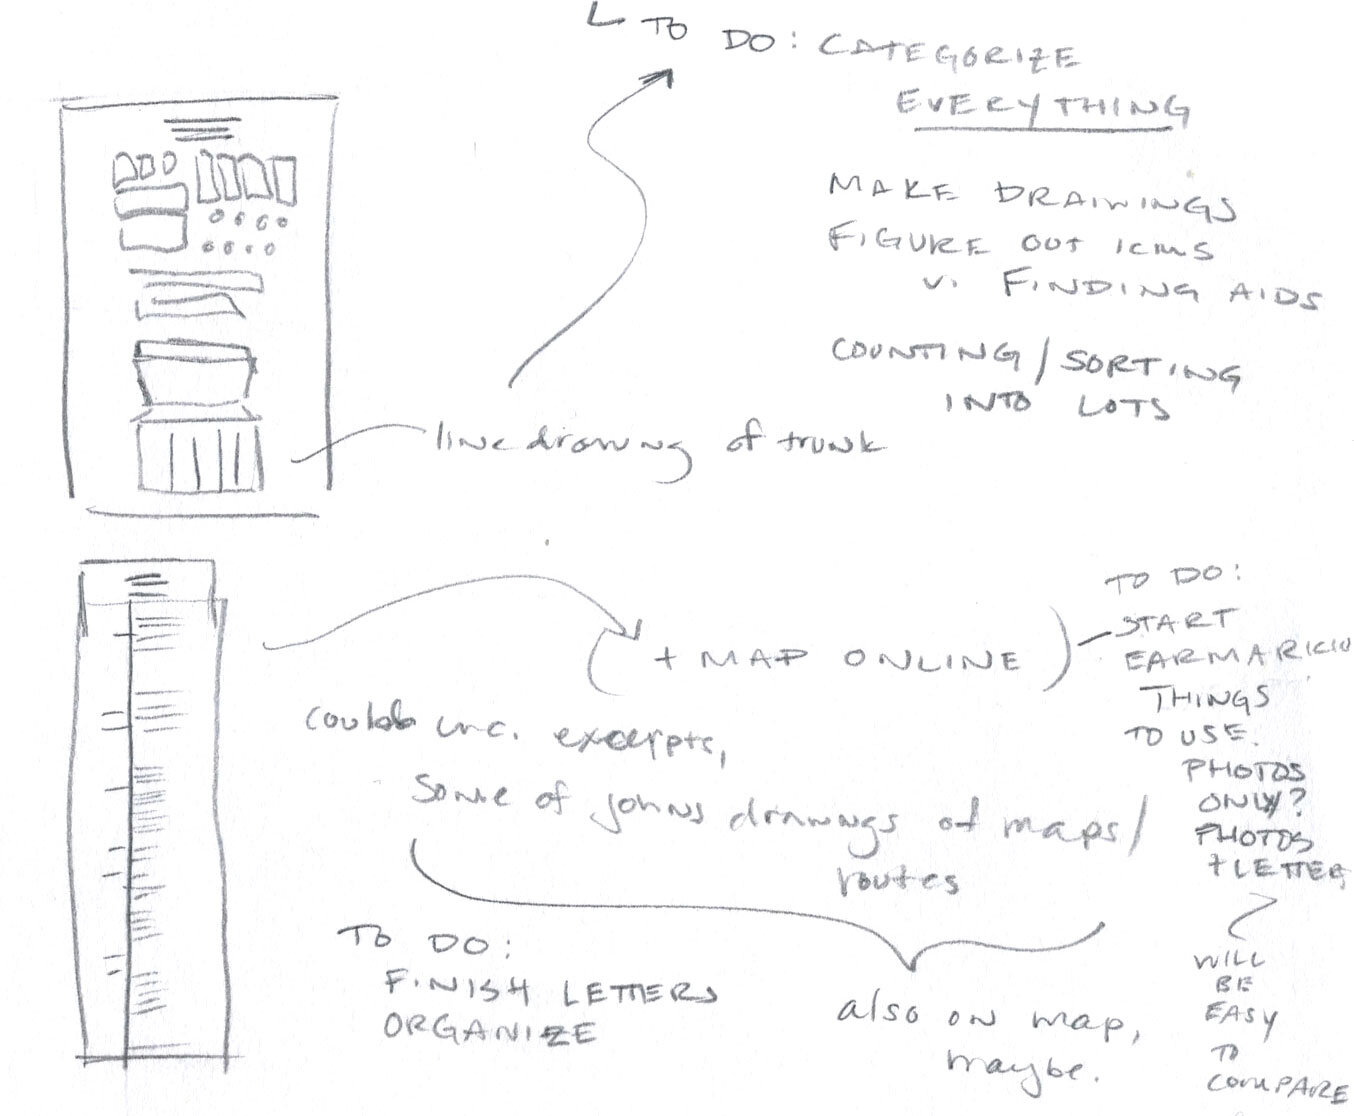 TO DO: CATEGORIZE
EVERYTHING
MAKE DRAWINGS
FIGURE OUT ICONS
V. FINDING AIDS
COUNTING/SORTING
INTO LOTS
line drawing of trunk
+ MAP ONLINE
TO DO:
START
EARMARKING
THINGS
TO USE.
PHOTOS
ONLY?
PHOTOS
+ LETTER,
WILL
BE
EASY
TO
COMPARE
could inc. excerpts,
some of johns drawings of maps/
routes
also on map,
maybe.
TO DO:
FINISH LETTERS
ORGANIZE